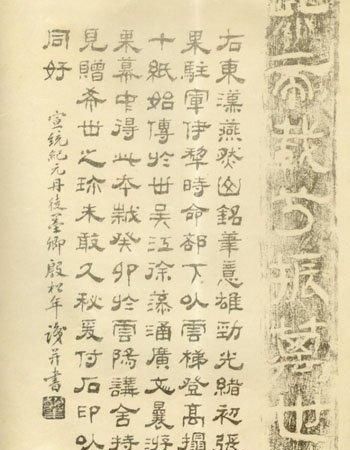 熙帝載兮振萬世
右東漢燕然山銘筆意雄勁光緒初張
果駐軍伊犁時命部下以雲梯登高搨
十紙始傳於世吳江徐藻涵廣文曩游
果幕中得此本歲癸卯於雲陽講舍持
見贈希世之珍未敢久秘爰付石印以
同好
宣統紀元丹徒墨卿殷松年識并書